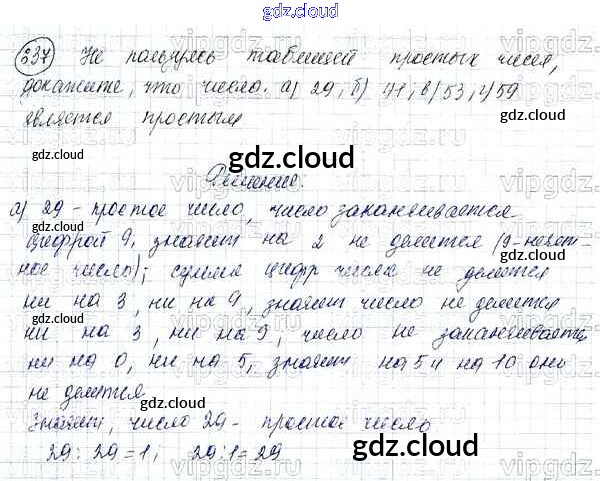 gdz.cloud
637 Не пользуясь таблицей простых чисел,
докажите, что число: а) 29; б) 41; в) 53; г) 59
является простым
gdz.cloud gdz.cloud gdz.cloud
Решение.
а) 29 - простое число, число заканчивается
цифрой 9, значит на 2 не делится (9-нечет-
ное число); сумма цифр числа не делится
ни на 3, ни на 9, значит число не делится
ни на 3, ни на 9, число не заканчивается
ни на 0, ни на 5, значит на 5 и на 10 оно
не делится.
Значит, число 29 - простое число.
29 : 29 = 1; 29 : 1 = 29
gdz.cloud